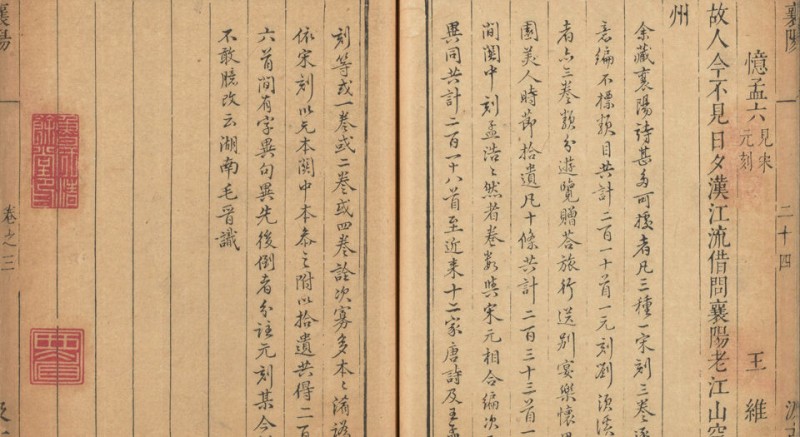 襄陽
二十四
憶孟六 見宋元刻 王維
故人今不見日夕漢江流借問襄陽老江山空
州
余藏襄陽詩甚多可據者凡三種一宋刻三卷逐
意編不標類目共計二百一十首一元刻劉須溪
者亦三卷類分遊覽贈荅旅行送別宴樂懷思
園美人時節拾遺凡十條共計二百三十三首一
間関中刻孟浩然者卷數與宋元相合編次
異同共計二百一十八首至近來十二家唐詩及王孟
刻等或一卷或二卷或四卷詮次寡多本〻淆訛
依宋刻以元本関中本叅之附以拾遺共得二百
六首間有字異句異先後倒者分註元刻某今
不敢臆改云湖南毛晉識
襄陽
卷之三